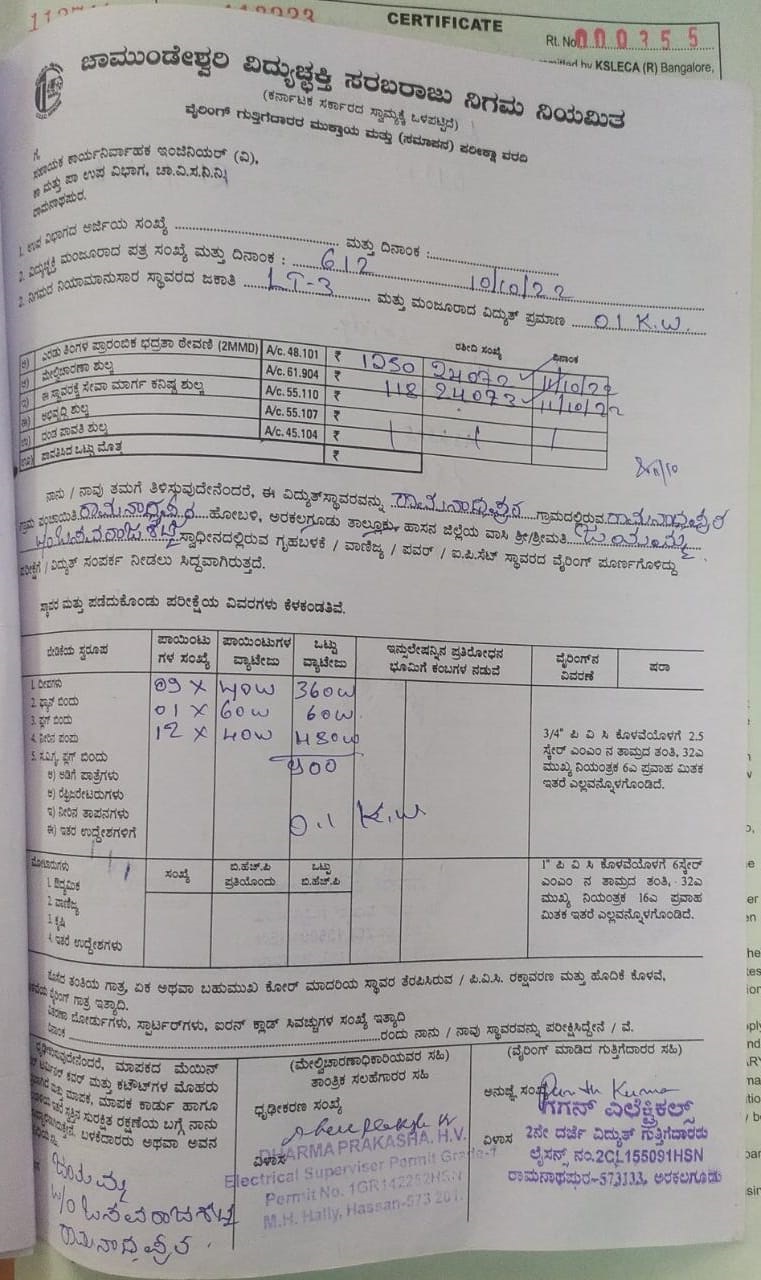 CERTIFICATE
Rt. No 000355
KSLECA (R) Bangalore,
ಚಾಮುಂಡೇಶ್ವರಿ ವಿದ್ಯುಚ್ಛಕ್ತಿ ಸರಬರಾಜು ನಿಗಮ ನಿಯಮಿತ
(ಕರ್ನಾಟಕ ಸರ್ಕಾರದ ಸ್ವಾಮ್ಯಕ್ಕೆ ಒಳಪಟ್ಟಿದೆ)
ವೈರಿಂಗ್ ಗುತ್ತಿಗೆದಾರರ ಮುಕ್ತಾಯ ಮತ್ತು (ಸಮಾಪನ) ಪರೀಕ್ಷಾ ವರದಿ
ಗೆ,
ಸಹಾಯಕ ಕಾರ್ಯನಿರ್ವಾಹಕ ಇಂಜಿನಿಯರ್ (ವಿ),
ಕಾ ಮತ್ತು ಪಾ ಉಪ ವಿಭಾಗ, ಚಾ.ವಿ.ಸ.ನಿ.ನಿ.
ರಾಮನಾಥಪುರ.
1. ಉಪ ವಿಭಾಗದ ಅರ್ಜಿಯ ಸಂಖ್ಯೆ ............ ಮತ್ತು ದಿನಾಂಕ :............
2. ವಿದ್ಯುಚ್ಛಕ್ತಿ ಮಂಜೂರಾದ ಪತ್ರ ಸಂಖ್ಯೆ ಮತ್ತು ದಿನಾಂಕ : 612 10/10/22
2. ನಿಗಮದ ನಿಯಾಮಾನುಸಾರ ಸ್ಥಾವರದ ಜಕಾತಿ LT-3 ಮತ್ತು ಮಂಜೂರಾದ ವಿದ್ಯುತ್ ಪ್ರಮಾಣ 01 K.W.
ರಶೀದಿ ಸಂಖ್ಯೆ ದಿನಾಂಕ
ಎರಡು ತಿಂಗಳ ಪ್ರಾರಂಬಿಕ ಭದ್ರತಾ ಠೇವಣಿ (2MMD) A/c. 48.101 ₹ 1250 24072 11/10/22
ಮೇಲ್ವಿಚಾರಣಾ ಶುಲ್ಕ A/c. 61.904 ₹ 118 24073 11/10/22
ಈ ಸ್ಥಾವರಕ್ಕೆ ಸೇವಾ ಮಾರ್ಗ ಕನಿಷ್ಠ ಶುಲ್ಕ A/c. 55.110 ₹
ಅಭಿವೃದ್ಧಿ ಶುಲ್ಕ A/c. 55.107 ₹
ದಂಡ ಪಾವತಿ ಶುಲ್ಕ A/c. 45.104 ₹
ಪಾವತಿಸಿದ ಒಟ್ಟು ಮೊತ್ತ ₹
ನಾನು / ನಾವು ತಮಗೆ ತಿಳಿಸ್ತುವುದೇನೆಂದರೆ, ಈ ವಿದ್ಯುತ್‌ಸ್ಥಾವರವನ್ನು ರಾಮನಾಥಪುರ ಗ್ರಾಮದಲ್ಲಿರುವ ರಾಮನಾಥಪುರ
ಗ್ರಾಮ ಪಂಚಾಯಿತಿ ರಾಮನಾಥಪುರ ಹೋಬಳಿ, ಅರಕಲಗೂಡು ತಾಲ್ಲೂಕು, ಹಾಸನ ಜಿಲ್ಲೆಯ ವಾಸಿ ಶ್ರೀ/ಶ್ರೀಮತಿ ಜಯಮ್ಮ
ಸ್ವಾಧೀನದಲ್ಲಿರುವ ಗೃಹಬಳಕೆ / ವಾಣಿಜ್ಯ / ಪವರ್ / ಐ.ಪಿ.ಸೆಟ್ ಸ್ಥಾವರದ ವೈರಿಂಗ್ ಪೂರ್ಣಗೊಳಿದ್ದು
ಪರೀಕ್ಷೆಗೆ / ವಿದ್ಯುತ್ ಸಂಪರ್ಕ ನೀಡಲು ಸಿದ್ದವಾಗಿರುತ್ತದೆ.
ಸ್ಥಾವರ ಮತ್ತು ಪಡೆದುಕೊಂಡು ಪರೀಕ್ಷೆಯ ವಿವರಗಳು ಕೆಳಕಂಡತಿವೆ.
ಬೇಡಿಕೆಯ ಸ್ವರೂಪ ಪಾಯಿಂಟು ಗಳ ಸಂಖ್ಯೆ ಪಾಯಿಂಟುಗಳ ವ್ಯಾಟೇಜು ಒಟ್ಟು ವ್ಯಾಟೇಜು ಇನ್ಸುಲೇಷನ್ನಿನ ಪ್ರತಿರೋಧನ ಭೂಮಿಗೆ ಕಂಬಗಳ ನಡುವೆ ವೈರಿಂಗ್‌ನ ವಿವರಣೆ ಷರಾ
1. ದೀಪಗಳು 09 X 40W 360W
2. ಫ್ಯಾನ್ ಬಿಂದು 01 X 60W 60W
3. ಪ್ಲಗ್ ಬಿಂದು 12 X 40W 480W
4. ನೀರಿನ ಪಂಪು
900
5. ಸಿ.ವಿಗ್ಯ ಪ್ಲಗ್ ಬಿಂದು
ಅ) ಅಡಿಗೆ ಪಾತ್ರೆಗಳು
ಆ) ರೆಫ್ರಿಜರೇಟರುಗಳು
ಇ) ನೀರಿನ ತಾಪನಗಳು
ಈ) ಇತರ ಉದ್ದೇಶಗಳಿಗೆ
0.1 K.W
3/4" ಪಿ ವಿ ಸಿ ಕೊಳವೆಯೊಳಗೆ 2.5
ಸ್ಕೇರ್ ಎಂಎಂ ನ ತಾಮ್ರದ ತಂತಿ, 32ಎ
ಮುಖ್ಯ ನಿಯಂತ್ರಕ 6ಎ ಪ್ರವಾಹ ಮಿತಕ
ಇತರೆ ಎಲ್ಲವನ್ನೊಳಗೊಂಡಿದೆ.
ಮೋಟಾರುಗಳು ಸಂಖ್ಯೆ ಬಿ.ಹೆಚ್.ಪಿ ಪ್ರತಿಯೊಂದು ಒಟ್ಟು ಬಿ.ಹೆಚ್.ಪಿ
1. ಔದ್ಯಮಿಕ
2. ವಾಣಿಜ್ಯ
3. ಕೃಷಿ
4. ಇತರೆ ಉದ್ದೇಶಗಳು
1" ಪಿ ವಿ ಸಿ ಕೊಳವೆಯೊಳಗೆ 6ಸ್ಕೇರ್
ಎಂಎಂ ನ ತಾಮ್ರದ ತಂತಿ, 32ಎ
ಮುಖ್ಯ ನಿಯಂತ್ರಕ 16ಎ ಪ್ರವಾಹ
ಮಿತಕ ಇತರೆ ಎಲ್ಲವನ್ನೊಳಗೊಂಡಿದೆ.
ತಂತಿಯ ಗಾತ್ರ, ಏಕ ಅಥವಾ ಬಹುಮುಖ ಕೋರ್ ಮಾದರಿಯ ಸ್ಥಾವರ ತೆರಪಿಸಿರುವ / ಪಿ.ವಿ.ಸಿ. ರಕ್ಷಾವರಣ ಮತ್ತು ಹೊದಿಕೆ ಕೊಳವೆ,
ವೈರಿಂಗ್ ಗಾತ್ರ ಇತ್ಯಾದಿ.
ವಿತರಣಾ ಬೋರ್ಡುಗಳು, ಸ್ಟಾರ್ಟರ್‌ಗಳು, ಐರನ್ ಕ್ಲಾಡ್ ಸಿವಚ್ಚುಗಳ ಸಂಖ್ಯೆ ಇತ್ಯಾದಿ
ದಿನಾಂಕ ............ರಂದು ನಾನು / ನಾವು ಸ್ಥಾವರವನ್ನು ಪರೀಕ್ಷಿಸಿದ್ದೇನೆ / ವೆ.
ದೃಢೀಕರಿಸುವುದೇನೆಂದರೆ, ಮಾಪಕದ ಮೆಯಿನ್
ಕವರ್ ಮತ್ತು ಕಟೌಟ್‌ಗಳ ಮೊಹರು
ಮಾಪಕ, ಮಾಪಕ ಕಾರ್ಡು ಹಾಗೂ
ಸುರಕ್ಷಿತ ರಕ್ಷಣೆಯ ಬಗ್ಗೆ ನಾನು
ಬಳಕೆದಾರರು ಅಥವಾ ಅವನ
ಜಯಮ್ಮ
W/o ಬಸವರಾಜಶೆಟ್ಟಿ
ರಾಮನಾಥಪುರ
(ಮೇಲ್ವಿಚಾರಣಾಧಿಕಾರಿಯವರ ಸಹಿ)
ತಾಂತ್ರಿಕ ಸಲಹೆಗಾರರ ಸಹಿ
ಧೃಢೀಕರಣ ಸಂಖ್ಯೆ
ವಿಳಾಸ
DHARMA PRAKASHA. H.V.
Electrical Superviser Permit Grade-1
Permit No. 1GR142252HSN
M.H. Hally, Hassan-573 201.
(ವೈರಿಂಗ್ ಮಾಡಿದ ಗುತ್ತಿಗೆದಾರರ ಸಹಿ)
ಅನುಜ್ಞೆ ಸಂಖ್ಯೆ
ಗಗನ್ ಎಲೆಕ್ಟ್ರಿಕಲ್ಸ್
ವಿಳಾಸ 2ನೇ ದರ್ಜೆ ವಿದ್ಯುತ್ ಗುತ್ತಿಗೆದಾರರು
ಲೈಸನ್ಸ್ ನಂ.2CL155091HSN
ರಾಮನಾಥಪುರ-573133, ಅರಕಲಗೂಡು